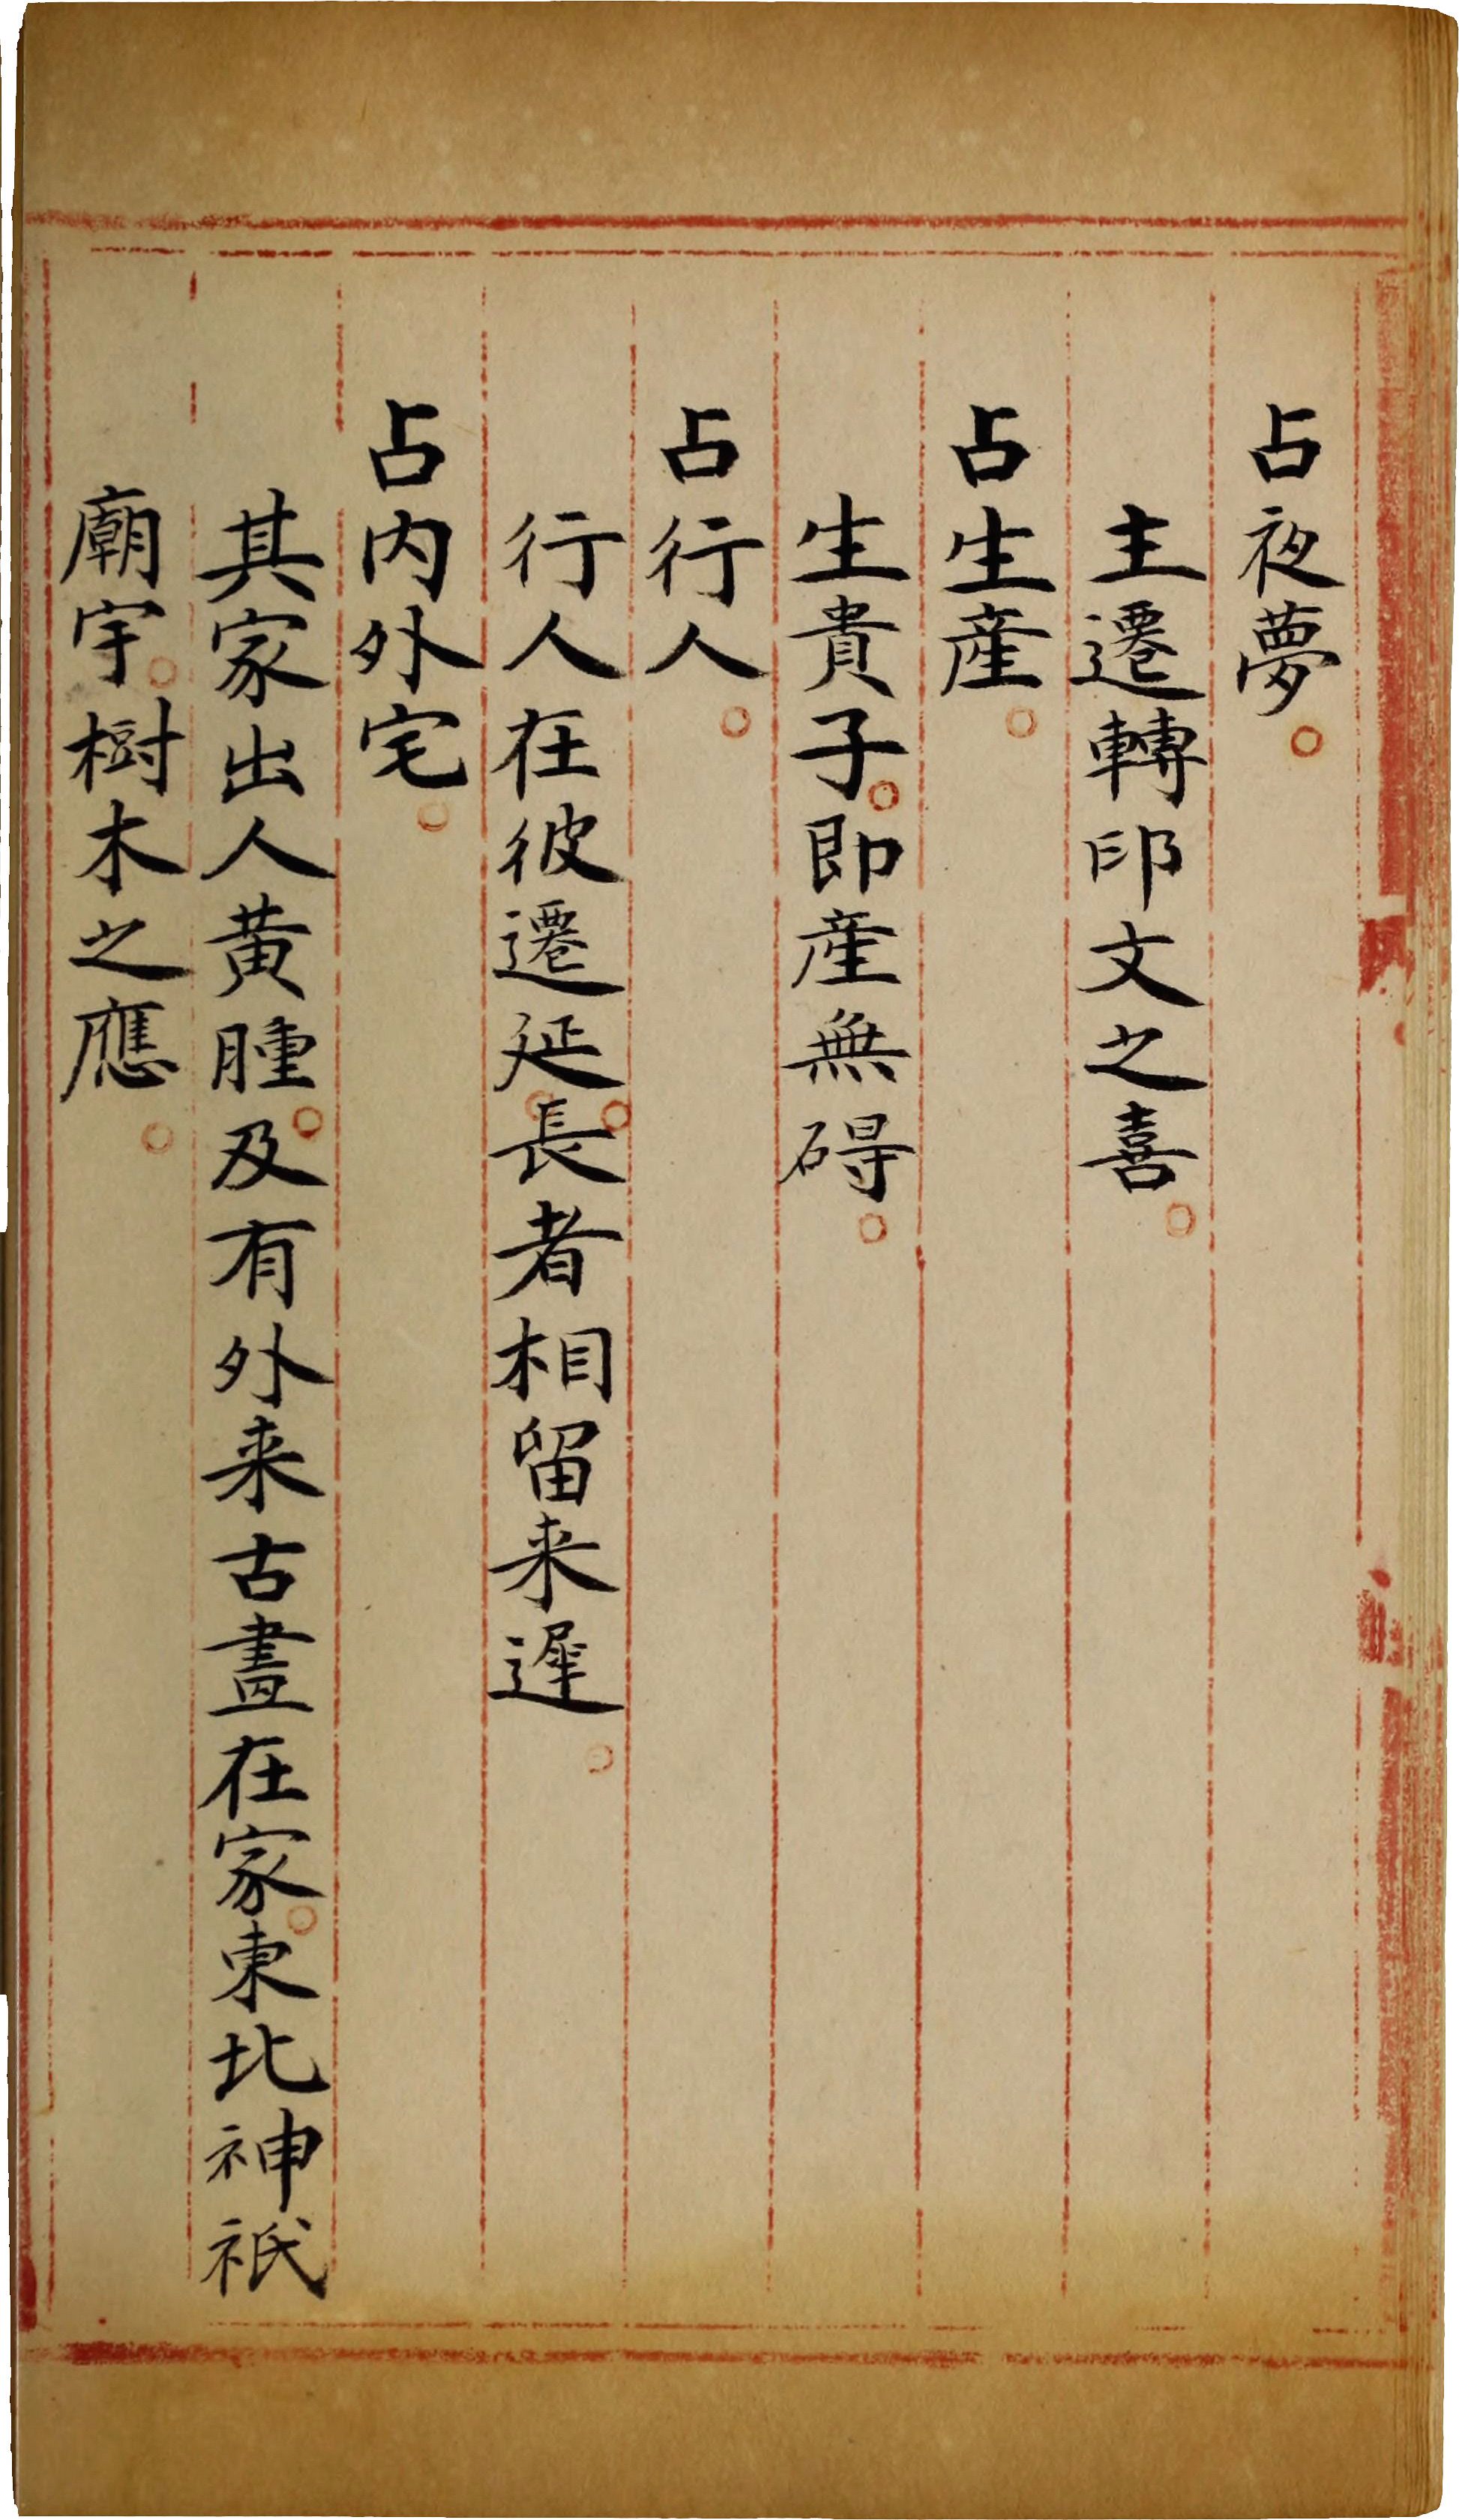 占夜夢
主遷轉印文之喜
占生產
生貴子即產無碍
占行人
行人在彼遷延長者相留来遲
占内外宅
其家出人黄腫及有外来古畫在家東北神祇
廟宇樹木之應